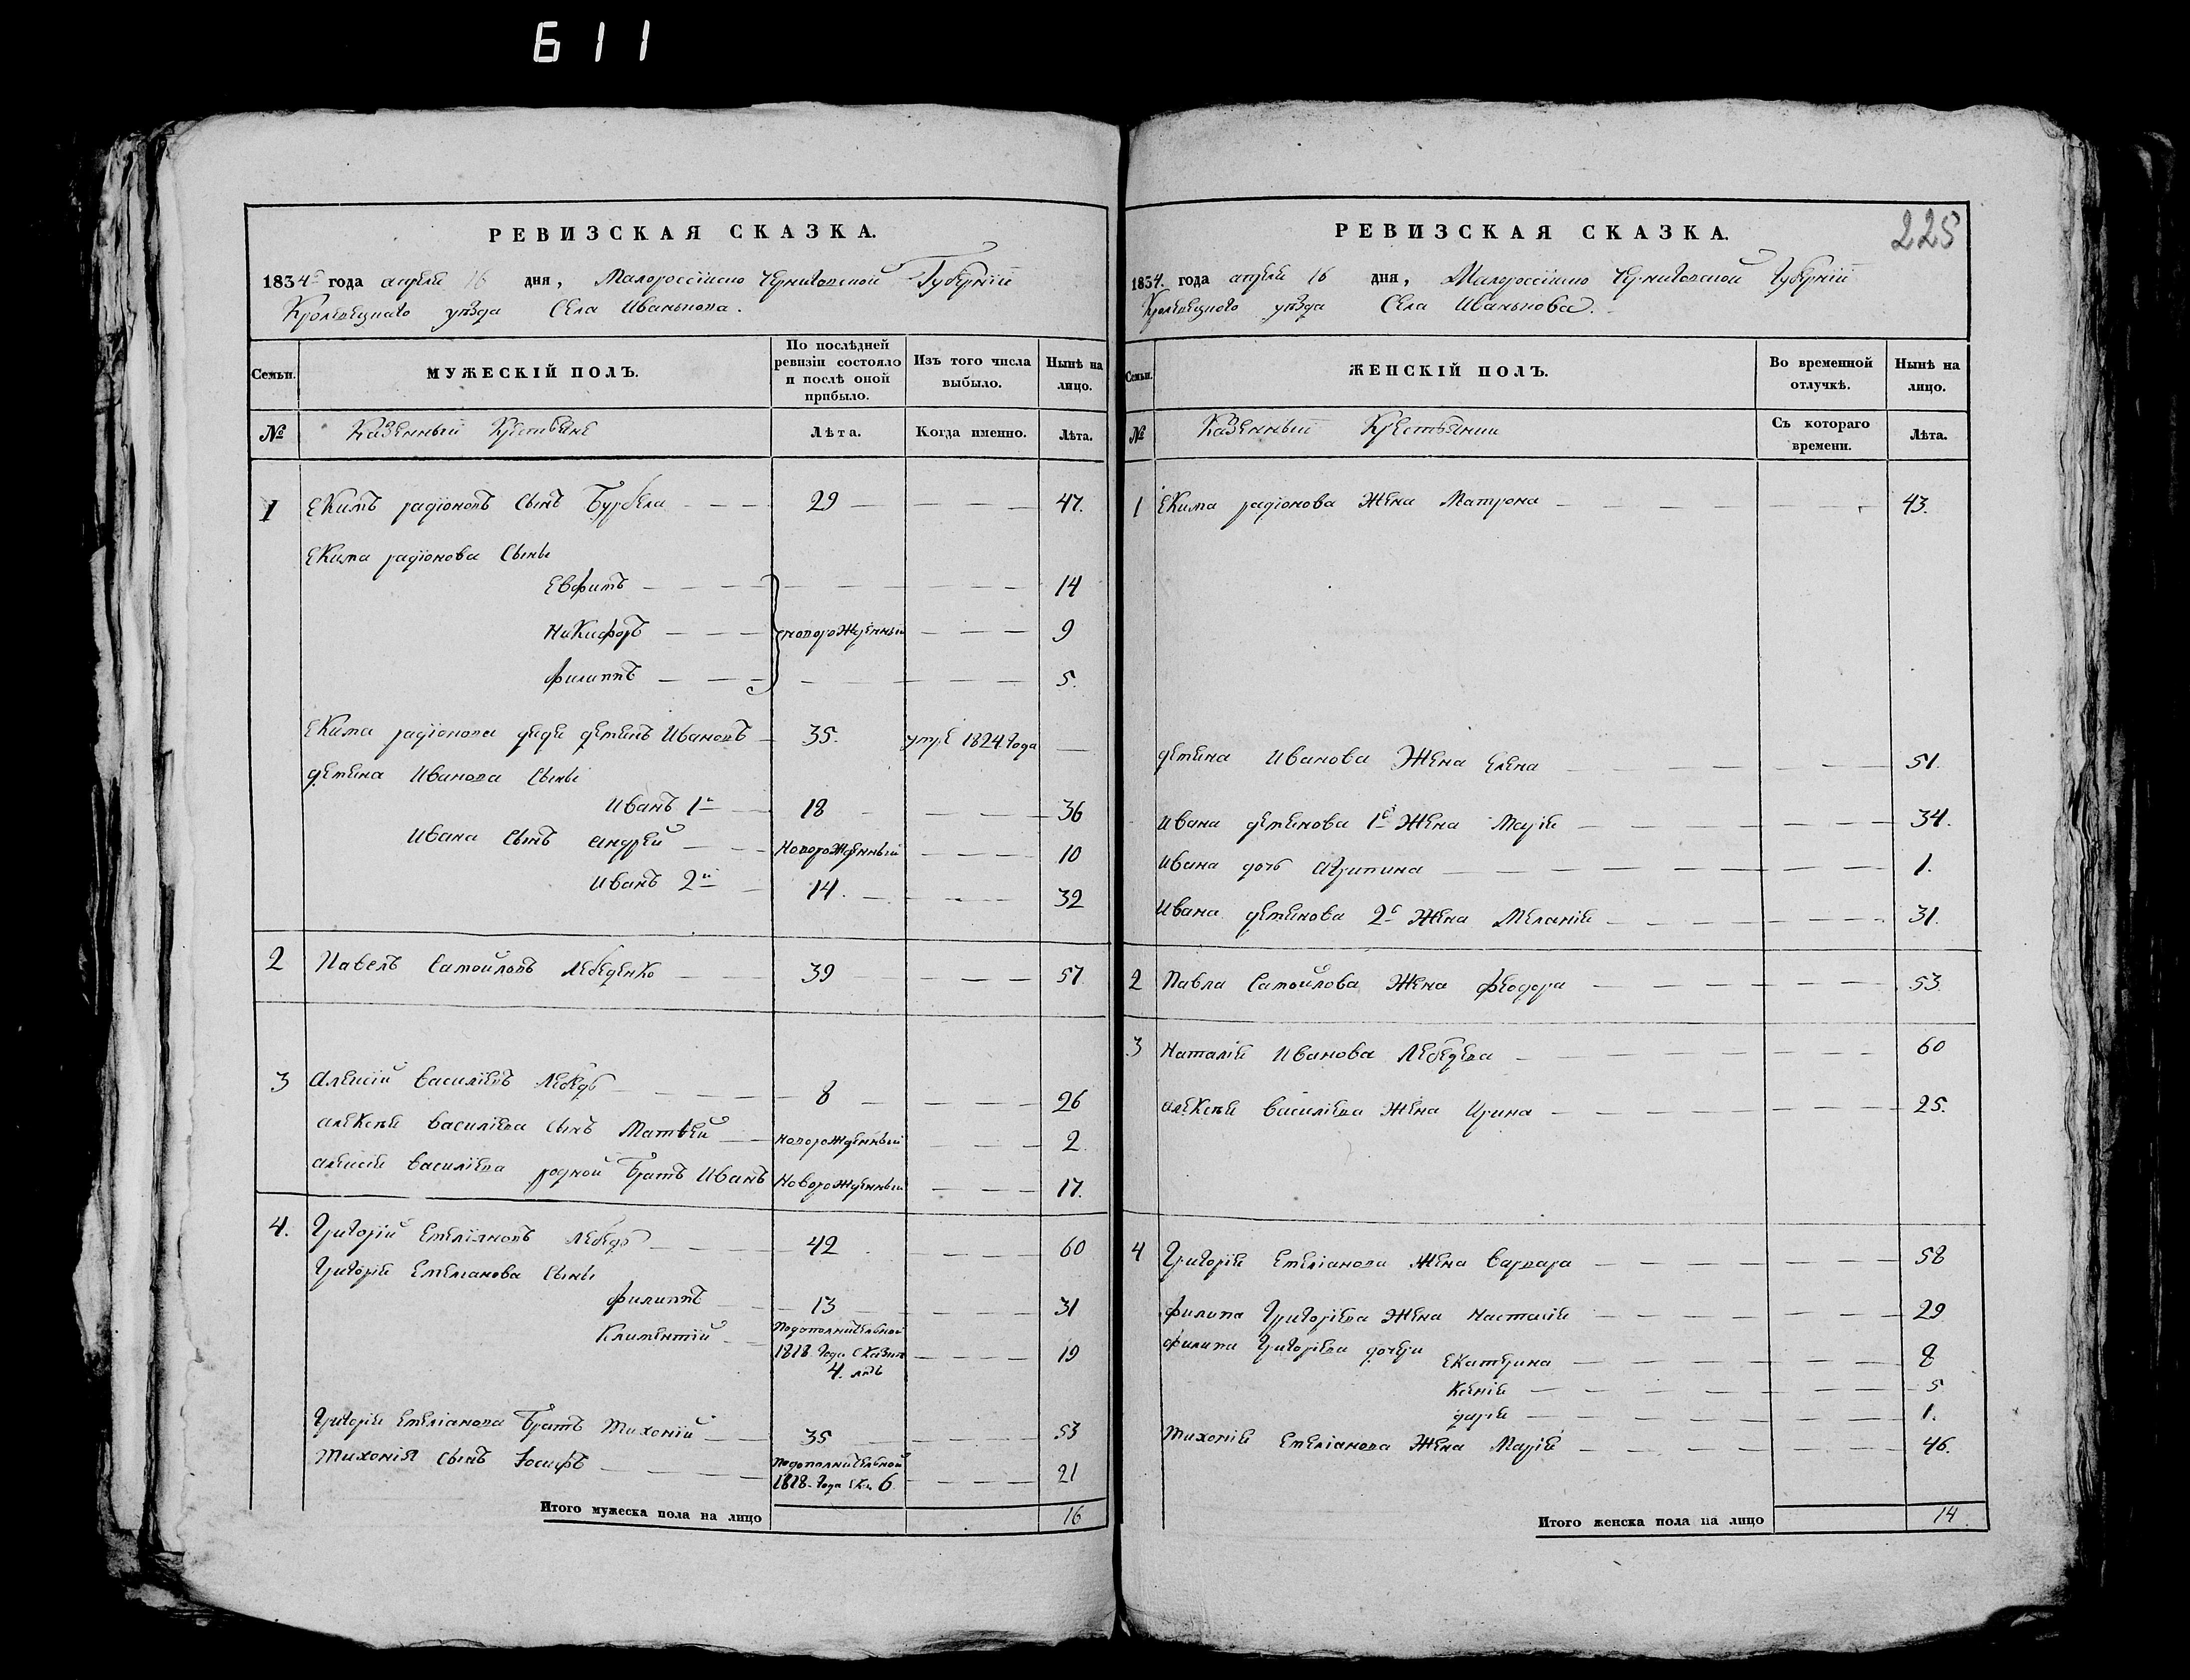 611
РЕВИЗСКАЯ СКАЗКА.
1834 года апреля 16 дня, Малороссiйско Черниговской Губернiи
Кролевецкаго уѣзда Села Иванькова.
Семьи.
МУЖЕСКIЙ ПОЛЪ.
По послѣдней ревизiи состояло и послѣ оной прибыло.
Изъ того числа выбыло.
Нынѣ на лицо.
№
Казенныи Крестьяне
Лѣта.
Когда именно.
Лѣта.
1 Екимъ радiоновъ Сынъ Бурбела 29 47.
Екима радiонова Сыны
Евфимъ 14
Никифоръ новорожденныи 9
филиппъ 5.
Екима радiонова дядя демянъ Ивановъ 35. умре 1824 Года
демяна Иванова Сыны
Иванъ 1й 18 36
Ивана Сынъ андрей Новорожденный 10
Иванъ 2й 14. 32
2 Павелъ Самойловъ Лебеденко 39 57
3 Алексiй василiевъ Лебедь 8 26
алексѣя василiева сынъ Матвѣй новорожденный 2
алексiя василiева родной братъ Иванъ Новорожденный 17.
4. Григорiй Емелiяновъ Лебедь 42 60
Григорiя Емелianова Сыны
филиппъ 13 31
Климентiй Подополнительной 1818 Года Сказки 4. лѣтъ 19
Григорiя Емелiанова братъ Тихонiй 35 53
Тихонiя Сынъ Iосифъ Подополнительной 1818 Года Ск. 6 21
Итого мужеска пола на лицо 16
РЕВИЗСКАЯ СКАЗКА.
225
1834. года апреля 16 дня, Малороссiйско Черниговской Губернiи
Кролевецкого уѣзда Села Иванькова.
Семьи.
ЖЕНСКIЙ ПОЛЪ.
Во временной отлучкѣ.
Нынѣ на лицо.
№
Казенныи Крестьянки
Съ котораго времени.
Лѣта.
1 Екима радiонова Жена Матрона 43.
демяна Иванова Жена Елена 51.
Ивана демянова 1го Жена Марiя 34.
Ивана дочь Агрипина 1.
Ивана демянова 2го Жена Меланiя 31.
2 Павла Самойлова Жена феодора 53.
3 Наталiя Иванова Лебедева 60
алексѣя василiева Жена Ирина 25.
4 Григорiя Емелiанова Жена варвара 58
филипа Григорiева Жена Настасiя 29
филипа Григорiева дочери
Екатерина 8
Ксенiя 5
дарiя 1.
Тихонiя Емелiанова Жена Марiя 46.
Итого женска пола на лицо 14.